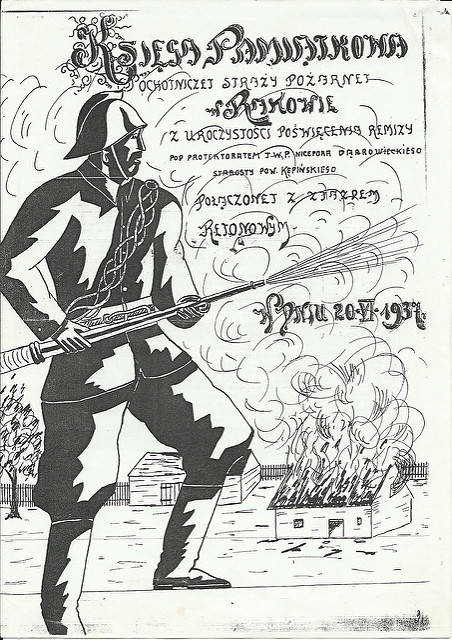 Księga Pamiątkowa
Ochotniczej Straży Pożarnej
w Rakowie
z uroczystości poświęcenia remizy
pod protektoratem J.W.P. Nicefora Dąbrowieckiego
starosty pow. Kępińskiego
połączonej z zjazdem
rejonowym
w dniu 20-VI-1937r.